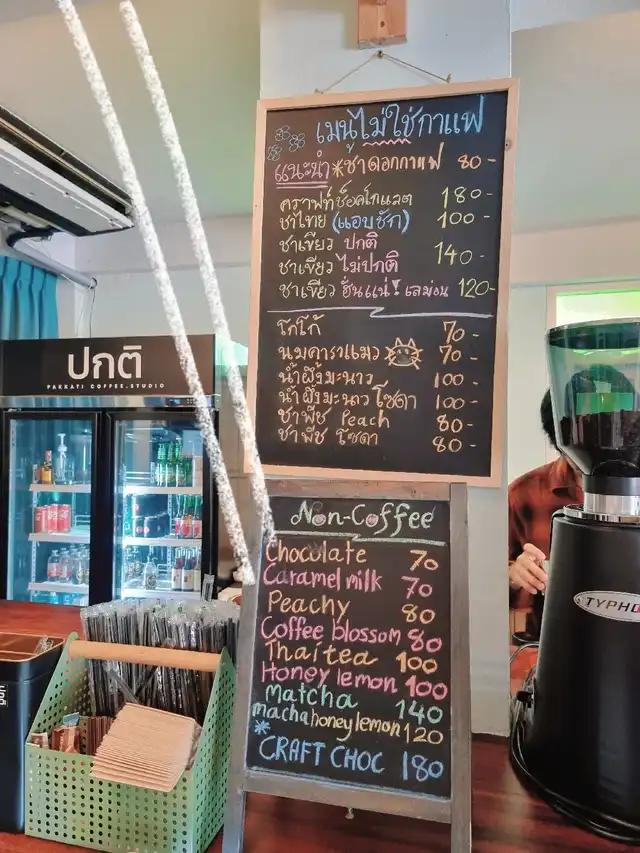 เมนูไม่ใช้กาแฟ
แนะนำ*ชาดอกกาแฟ 80-
คราฟท์ช็อคโกแลต 180-
ชาไทย (แอบชัก) 100-
ชาเขียว ปกติ
140-
ชาเขียว ไม่ปกติ
ชาเขียว ฮั่นแน่! เลม่อน 120-
โกโก้ 70-
นมคาราแมว 70-
น้ำผึ้งมะนาว 100-
น้ำผึ้งมะนาวโซดา 100-
ชาพีช Peach 80-
ชาพีช โซดา 80-
ปกติ
PAKKATI COFFEE.STUDIO
Non-Coffee
Chocolate 70
Caramel milk 70
Peachy 80
Coffee blossom 80
Thai tea 100
Honey lemon 100
Matcha 140
macha honey lemon 120
* CRAFT CHOC 180
TYPHO